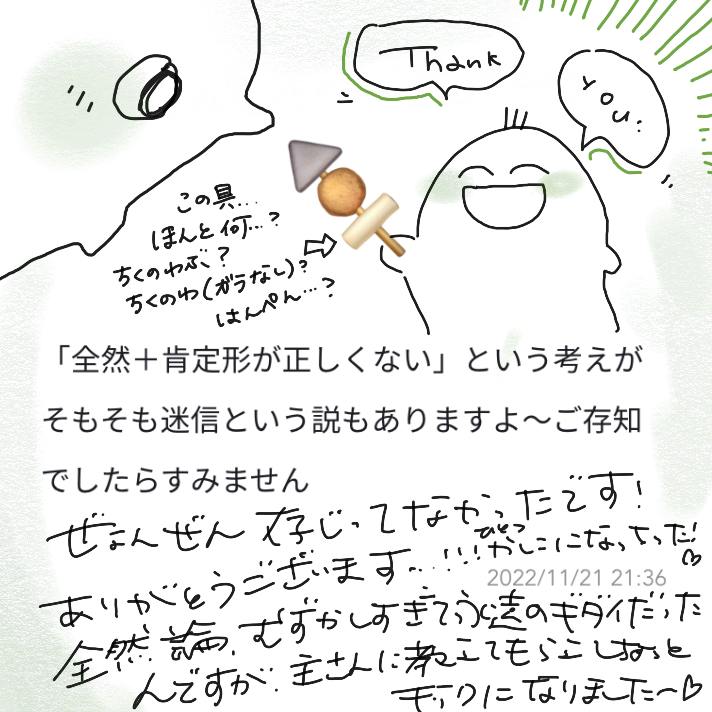 Thank
you:
この具...
ほんと何...?
ちくのわぶ?
ちくのわ(ガラなし)?
はんぺん...?
「全然＋肯定形が正しくない」という考えが
そもそも迷信という説もありますよ〜ご存知
でしたらすみません
ぜよんぜん 存じってなかったです!
ひとつ
かしこになっちった!
ありがとうございます...!!!
2022/11/21 21:36
全然論、むずかしすぎて永遠のギダイだった
んですが、主さんに教えてもらえしおっと
キッカケになりました〜♡